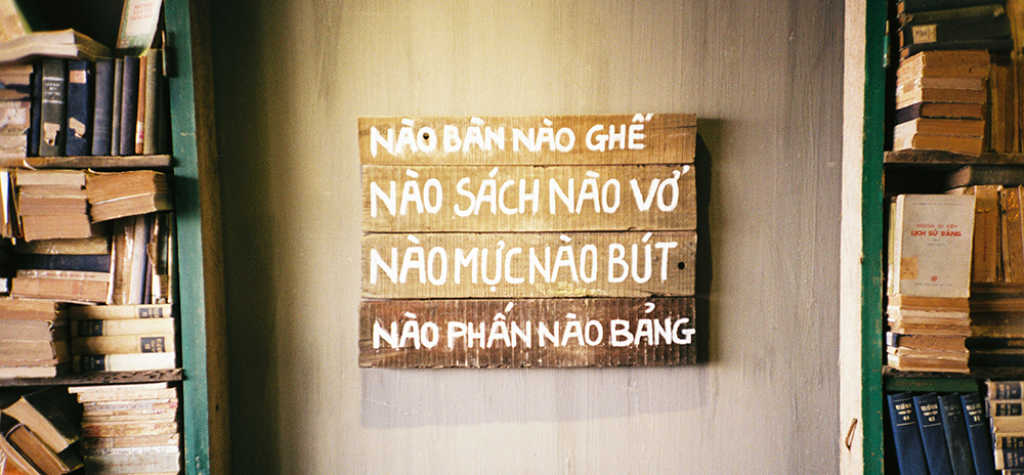 NÀO BÀN NÀO GHẾ
NÀO SÁCH NÀO VỞ
NÀO MỰC NÀO BÚT
NÀO PHẤN NÀO BẢNG
LỊCH SỬ ĐẢNG